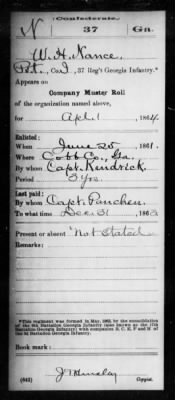 Confederate.
N 37 Ga.
W. H. Nance,
Pvt., Co. I, 37 Reg't Georgia Infantry.*
Appears on
Company Muster Roll
of the organization named above,
for Apl. 1, 1864.
Enlisted:
When June 20, 1861.
Where Cobb Co., Ga.
By whom Capt. Kendrick.
Period 3 yrs.
Last paid:
By whom Capt. Panchen.
To what time Dec. 31, 1863
Present or absent Not Stated.
Remarks:
*This regiment was formed in May, 1863, by the consolidation
of the 9th Battalion Georgia Infantry (also known as the 17th
Battalion Georgia Infantry) with companies B, C, E, F and H of
the 3d Battalion Georgia Infantry.
Book mark:
(642) Copyist.